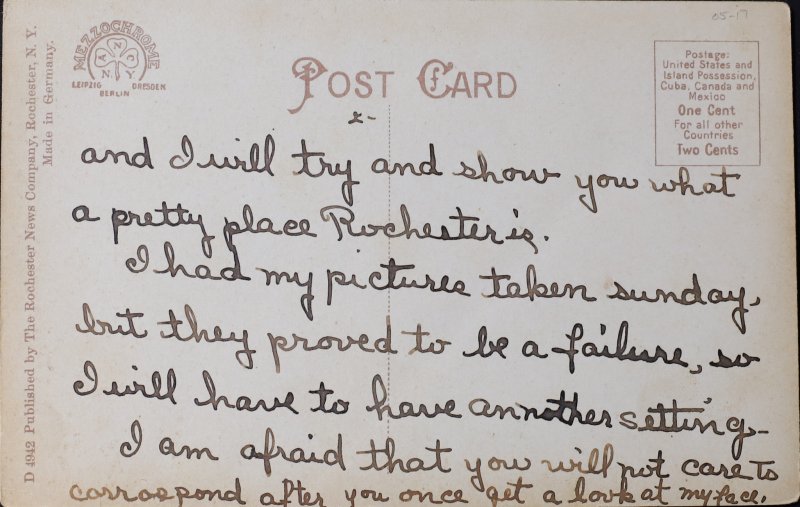 05-17
MEZZOCHROME
ANCNY
LEIPZIG DRESDEN
BERLIN
POST CARD
Postage:
United States and
Island Possession,
Cuba, Canada and
Mexico
One Cent
For all other
Countries
Two Cents
D 4942 Published by The Rochester News Company, Rochester, N. Y.
Made in Germany.
2-
and I will try and show you what
a pretty place Rochester is.
I had my pictures taken sunday,
but they proved to be a failure, so
I will have to have annother setting-
I am afraid that you will not care to
corraspond after you once get a look at my face.